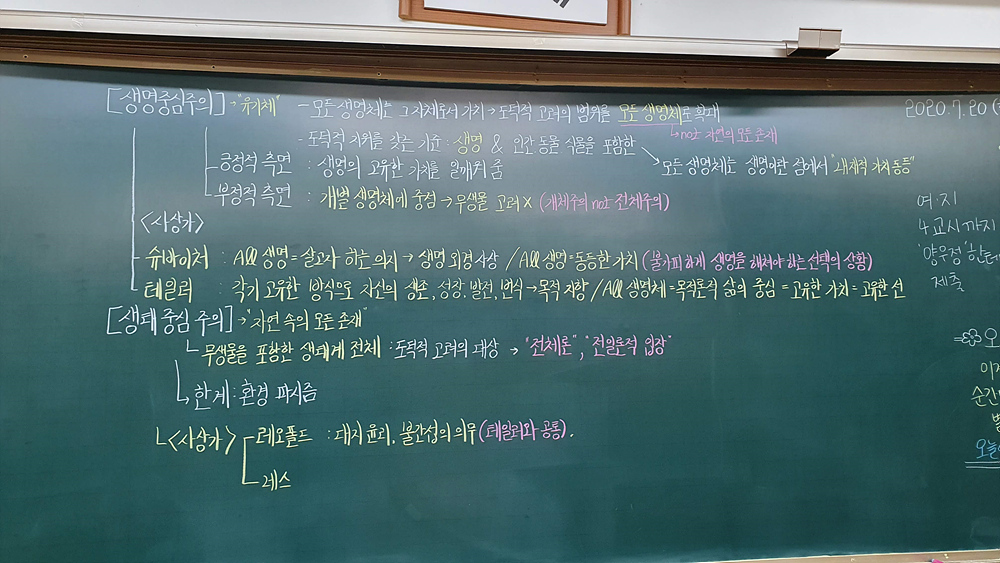 [생명중심주의] → "유기체" - 모든 생명체는 그 자체로서 가치 → 도덕적 고려의 범위를 모든 생명체로 확대
→ not 자연의 모든 존재
- 도덕적 지위를 갖는 기준 : 생명 & 인간 동물 식물을 포함한
→ 모든 생명체는 생명이란 점에서 "내재적 가치 동등"
긍정적 측면 : 생명의 고유한 가치를 일깨워 줌
부정적 측면 : 개별 생명체에 중점 → 무생물 고려 X (개체주의 not 전체주의)
<사상가>
슈바이처 : All 생명 = 살고자 하는 의지 → 생명 외경 사상 / All 생명 = 동등한 가치 (불가피하게 생명을 해쳐야 하는 선택의 상황)
테일러 : 각기 고유한 방식으로 자신의 생존, 성장, 발전, 번식 → 목적 지향 / All 생명체 = 목적론적 삶의 중심 = 고유한 가치 = 고유한 선
[생태 중심 주의] → "자연 속의 모든 존재"
무생물을 포함한 생태계 전체 : 도덕적 고려의 대상 → "전체론", "전일론적 입장"
한계 : 환경 파시즘
<사상가> 레오폴드 : 대지 윤리, 불간섭의 의무 (테일러와 공통).
레스
2020.7.20 (
여.지
4교시까지
'양우정'한테
제출
⇒ 오
이제
순간
오늘